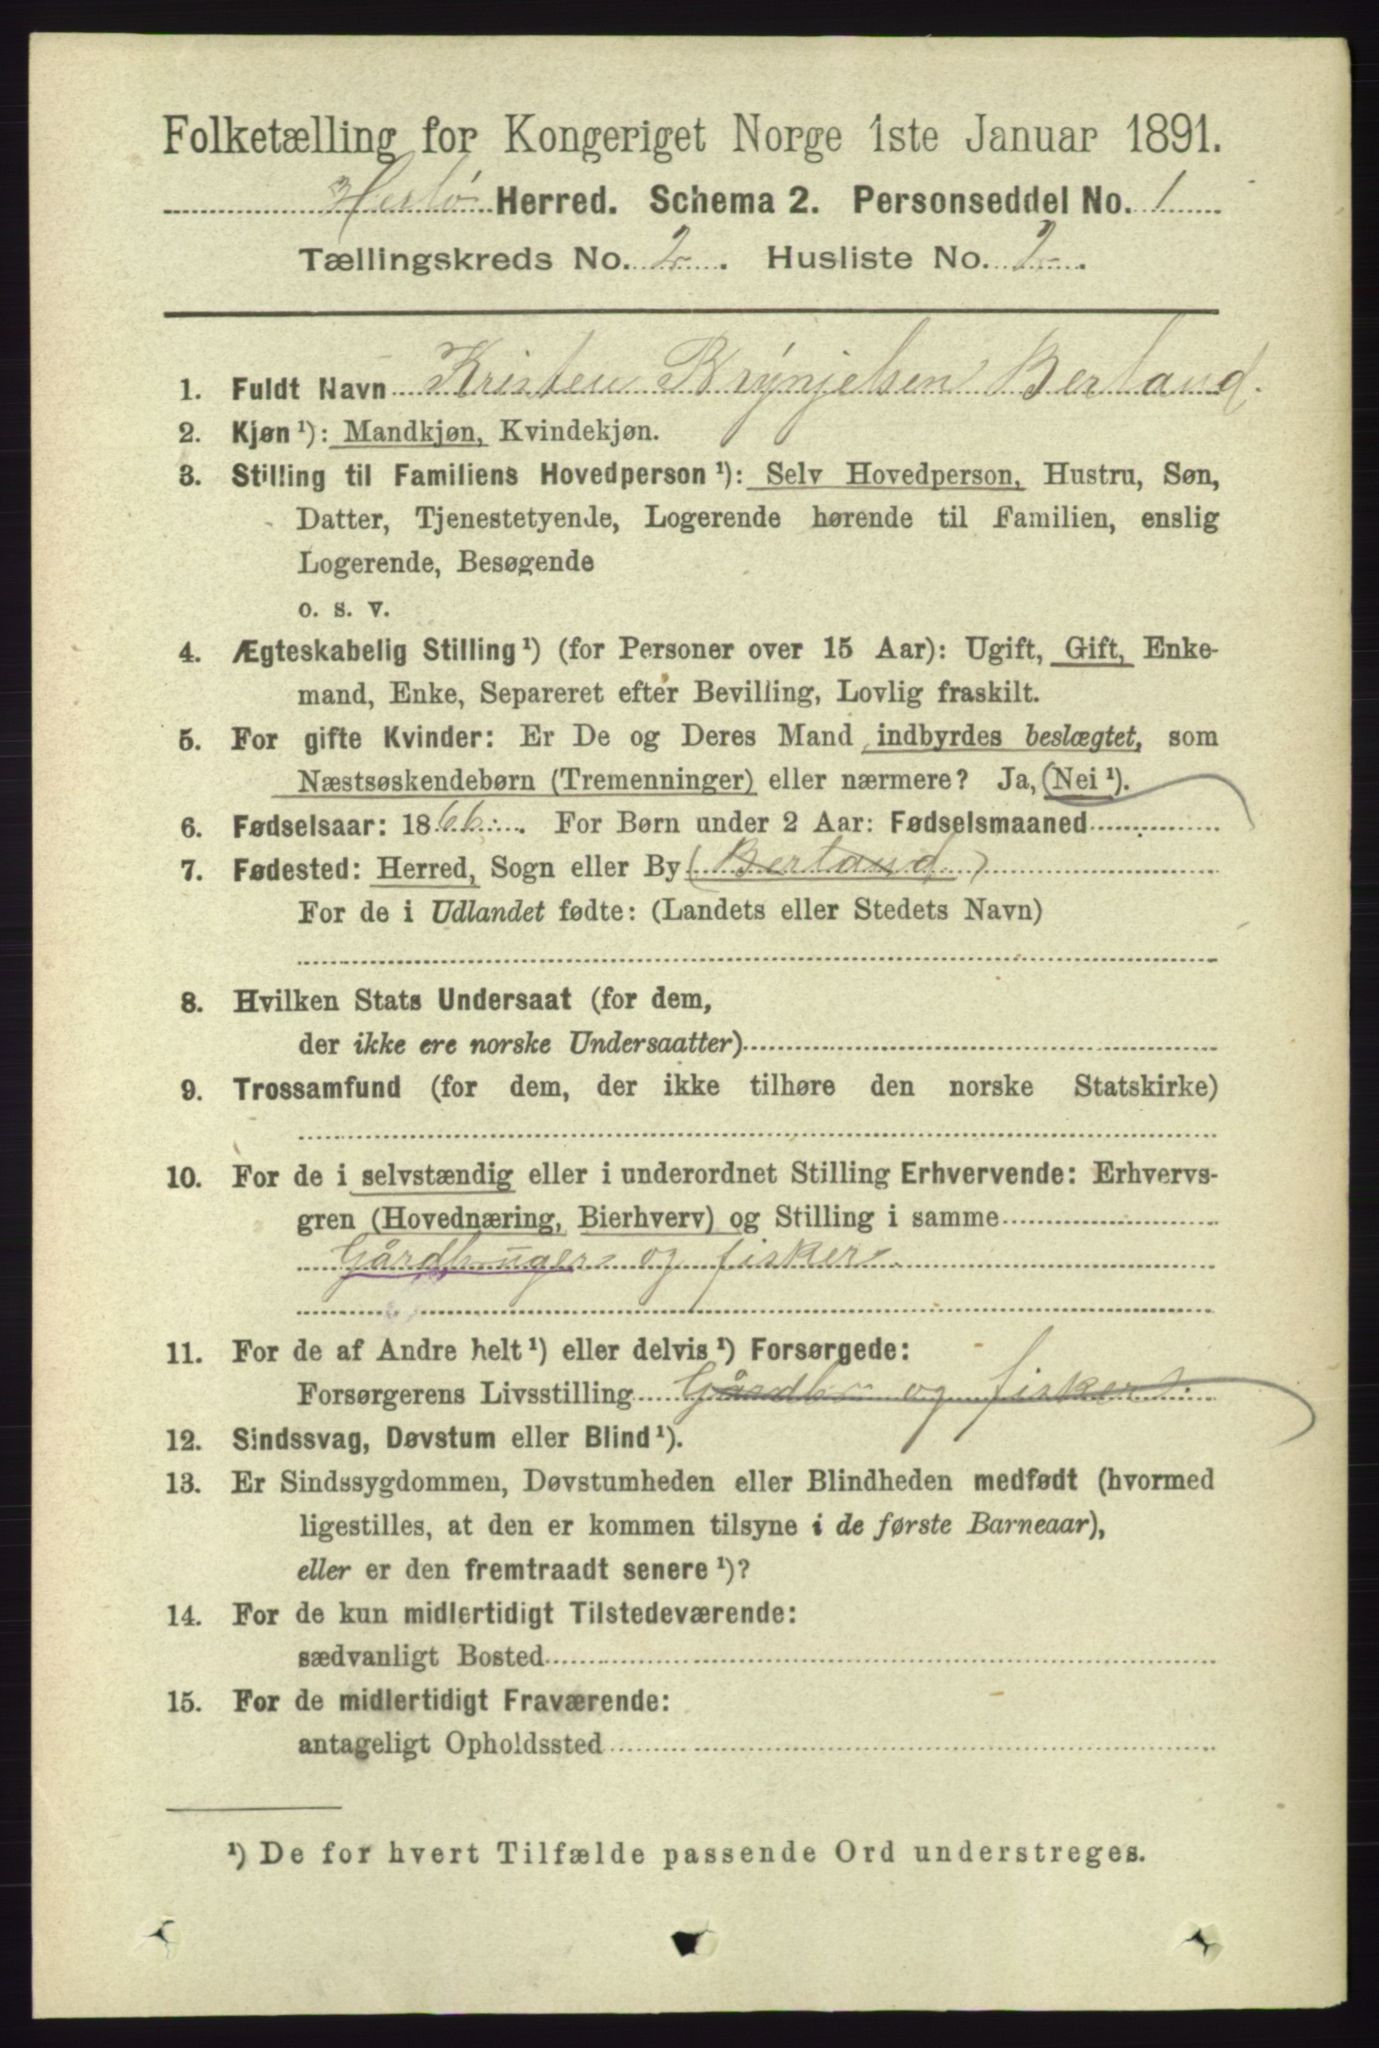 Folketælling for Kongeriget Norge 1ste Januar 1891.
Herlø Herred. Schema 2. Personseddel No. 1
Tællingskreds No. 2. Husliste No. 2.
1. Fuldt Navn Kristen Brynjelsen Berland.
2. Kjøn ¹): Mandkjøn, Kvindekjøn.
3. Stilling til Familiens Hovedperson ¹): Selv Hovedperson, Hustru, Søn,
Datter, Tjenestetyende, Logerende hørende til Familien, enslig
Logerende, Besøgende
o. s. v.
4. Ægteskabelig Stilling ¹) (for Personer over 15 Aar): Ugift, Gift, Enke-
mand, Enke, Separeret efter Bevilling, Lovlig fraskilt.
5. For gifte Kvinder: Er De og Deres Mand indbyrdes beslægtet, som
Næstsøskendebørn (Tremenninger) eller nærmere? Ja, (Nei ¹).
6. Fødselsaar: 1866. For Børn under 2 Aar: Fødselsmaaned
7. Fødested: Herred, Sogn eller By (Berland)
For de i Udlandet fødte: (Landets eller Stedets Navn)
8. Hvilken Stats Undersaat (for dem,
der ikke ere norske Undersaatter)
9. Trossamfund (for dem, der ikke tilhøre den norske Statskirke)
10. For de i selvstændig eller i underordnet Stilling Erhvervende: Erhvervs-
gren (Hovednæring, Bierhverv) og Stilling i samme
Gårdbruger og fisker.
11. For de af Andre helt ¹) eller delvis ¹) Forsørgede:
Forsørgerens Livsstilling Gårdbr og fisker.
12. Sindssvag, Døvstum eller Blind ¹).
13. Er Sindssygdommen, Døvstumheden eller Blindheden medfødt (hvormed
ligestilles, at den er kommen tilsyne i de første Barneaar),
eller er den fremtraadt senere ¹)?
14. For de kun midlertidigt Tilstedeværende:
sædvanligt Bosted
15. For de midlertidigt Fraværende:
antageligt Opholdssted
¹) De for hvert Tilfælde passende Ord understreges.